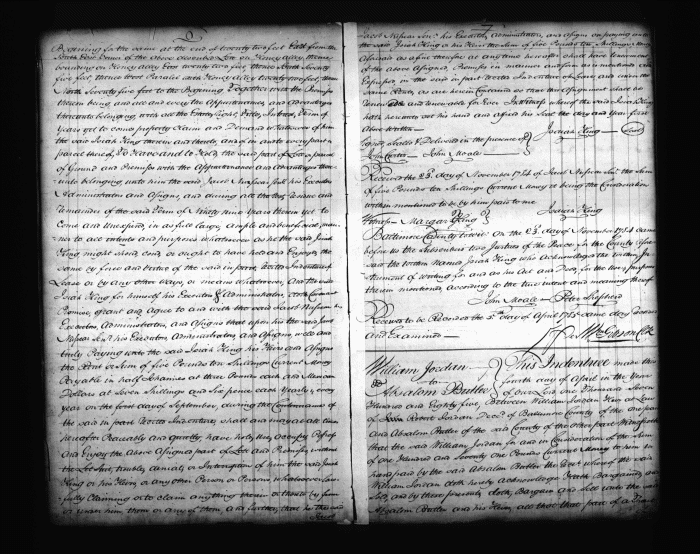 Beginning for the same at the end of twenty two feet East from the
bounding on Honey Alley East twenty two feet, thence South Seventy
five feet, thence West Paralel with Honey Alley twenty two feet, then
North Seventy five feet to the Beginning Together with the Premises
thereon being, and all and every the Appurtenances, and Advantages
thereunto belonging, with all the Estate, Right, Title, Interest, Term of
Years yet to come, property Claim and Demand whatsoever of him
the said Josiah King therein and thereto, and of in and to every part &
parcel thereof, To Have and to Hold, the said part of Lot or parcel
of Ground and Premises with the Appurtenances and Advantages there-
unto belonging unto him the said Jacob his Executors
Administrators and Assigns, and during all the Rest Residue and
Remainder of the said Term of Ninety nine Years therein yet to
Come and Unexpired, in as full large, ample and beneficial, man-
ner to all intents and purposes whatsoever as he the said Josiah
King might should cou'd or ought to have held and Enjoyed the
same by force and virtue of the said in part recited Indenture of
Lease or by any other Ways, or means Whatsoever, And the said
Josiah King for himself his Executors & Administrators, doth Cove
Promise, grant and agree to and with the said Jacob
Executors, Administrators, and Assigns that upon his the said Jacob
his Executors Administrators, and Assigns well and
truly Paying unto the said Josiah King his Heirs and Assigns
the Rent or Sum of five Pounds ten Shillings Current Money
Payable in half Johannes at three Pounds each and Spanish
Dollars at Seven Shillings and Six pence each Yearly & every
year on the first day of September, during the Continuance of
the said in part recited Indenture, shall and may at all times
hereafter Peaceably and quietly have hold, Use, Occupy Possess
And Enjoy the Above Assigned part of Lot and Premises without
the Let, Suit, trouble, denial, or Interruption of him the said Josiah
King or his Heirs, or any other Person or Persons whatsoever law-
fully Claiming or to claim any thing therein or thereto by from
or under him them or any of them, And further, that he the said
Jacob
his Executors, Administrators, and Assigns on paying unto
the said Josiah King or his Heirs the Sum of five Pounds ten Shillings
Aforesaid as a fine therefor at any time hereafter shall have
of the above Assigned Premises in manner and form as mentioned and
Expressed in the said in part recited Indenture of Lease and under the
same Rents, as are herein Contained so that this Assignment shall be
renewable and renewable for Ever In Witness whereof the said Josiah King
hath hereunto set his hand and affixed his Seal the day and year first
Above Written
Josiah King Seal
Signed Sealed & Delivered in the presence of
John Moale
Received the 23d day of November 1784 of Jacob the Sum
of five Pounds ten Shillings Current Money it being the Consideration
within mentioned to be by him paid to me
Josiah King
Witness Margaret King
Baltimore County to wit On the 23d day of November 1784 came
before us the Subscribers two Justices of the Peace for the County Afore
said the within Named Josiah King who Acknowledged the within In
strument of Writing for and as his Act and Deed for the Uses & purposes
therein mentioned, according to the true intent and meaning thereof
John Moale Peter Shepherd
Received to be Recorded the 5th day of April 1785 same day Recorded
and Examined
Per Wm Gibson Clk
William Jordan
to
Absalom Butler
This Indenture made this
fourth day of April in the Year
of our Lord One Thousand Seven
Hundred and Eighty five Between William Jordan Heir at Law
of Robert Jordan Deced of Baltimore County of the one part
and Absalom Butler of the said County of the other part Witnesseth
that the said William Jordan for and in Consideration of the Sum
of One Hundred and Seventy one Pounds Current Money to him in
hand paid by the said Absalom Butler the Rect whereof the said
William Jordan doth hereby Acknowledge Hath Bargained, and
Sold, and by these presents, doth, Bargain and Sell unto the said
Absalom Butler and his Heirs, all that part of a Tract